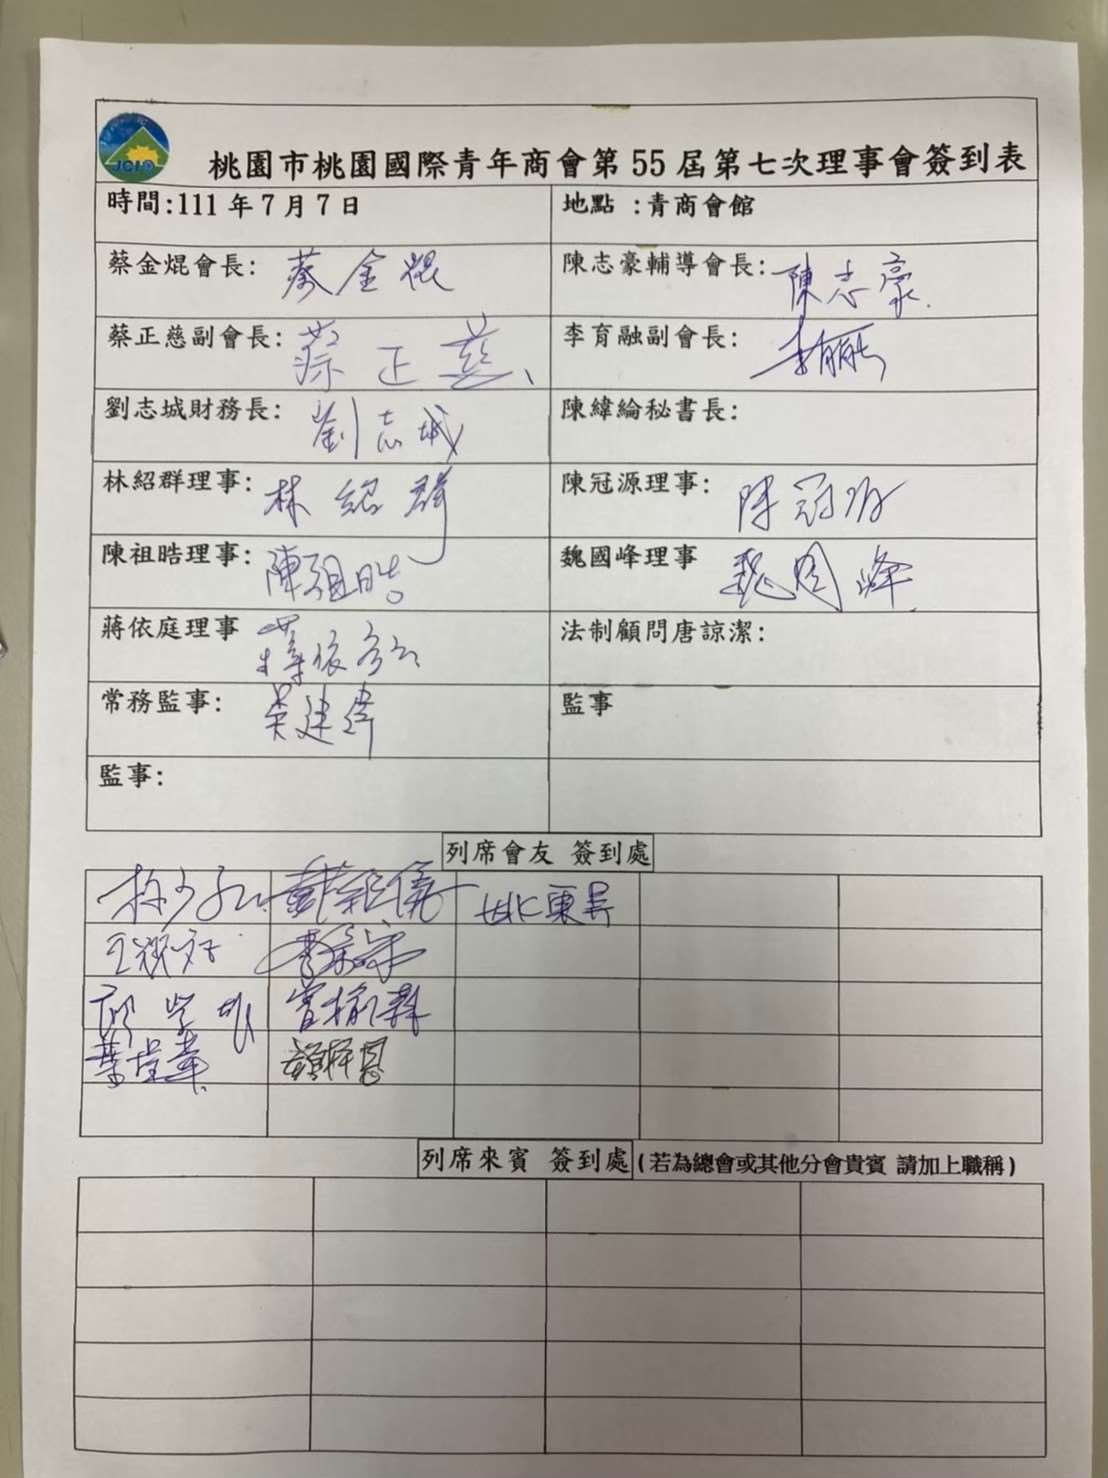 桃園市桃園國際青年商會第 55 屆第七次理事會簽到表
時間:111 年 7 月 7 日 地點 :青商會館
蔡金焜會長: 蔡金焜 陳志豪輔導會長: 陳志豪
蔡正慈副會長: 蔡正慈 李育融副會長: 李育融
劉志城財務長: 劉志城 陳緯綸秘書長:
林紹群理事: 林紹群 陳冠源理事: 陳冠源
陳祖晧理事: 陳祖晧 魏國峰理事 魏國峰
蔣依庭理事 蔣依庭 法制顧問唐諒潔:
常務監事: 吳建緯 監事
監事:
列席會友 簽到處
姚東昇
列席來賓 簽到處 (若為總會或其他分會貴賓 請加上職稱)